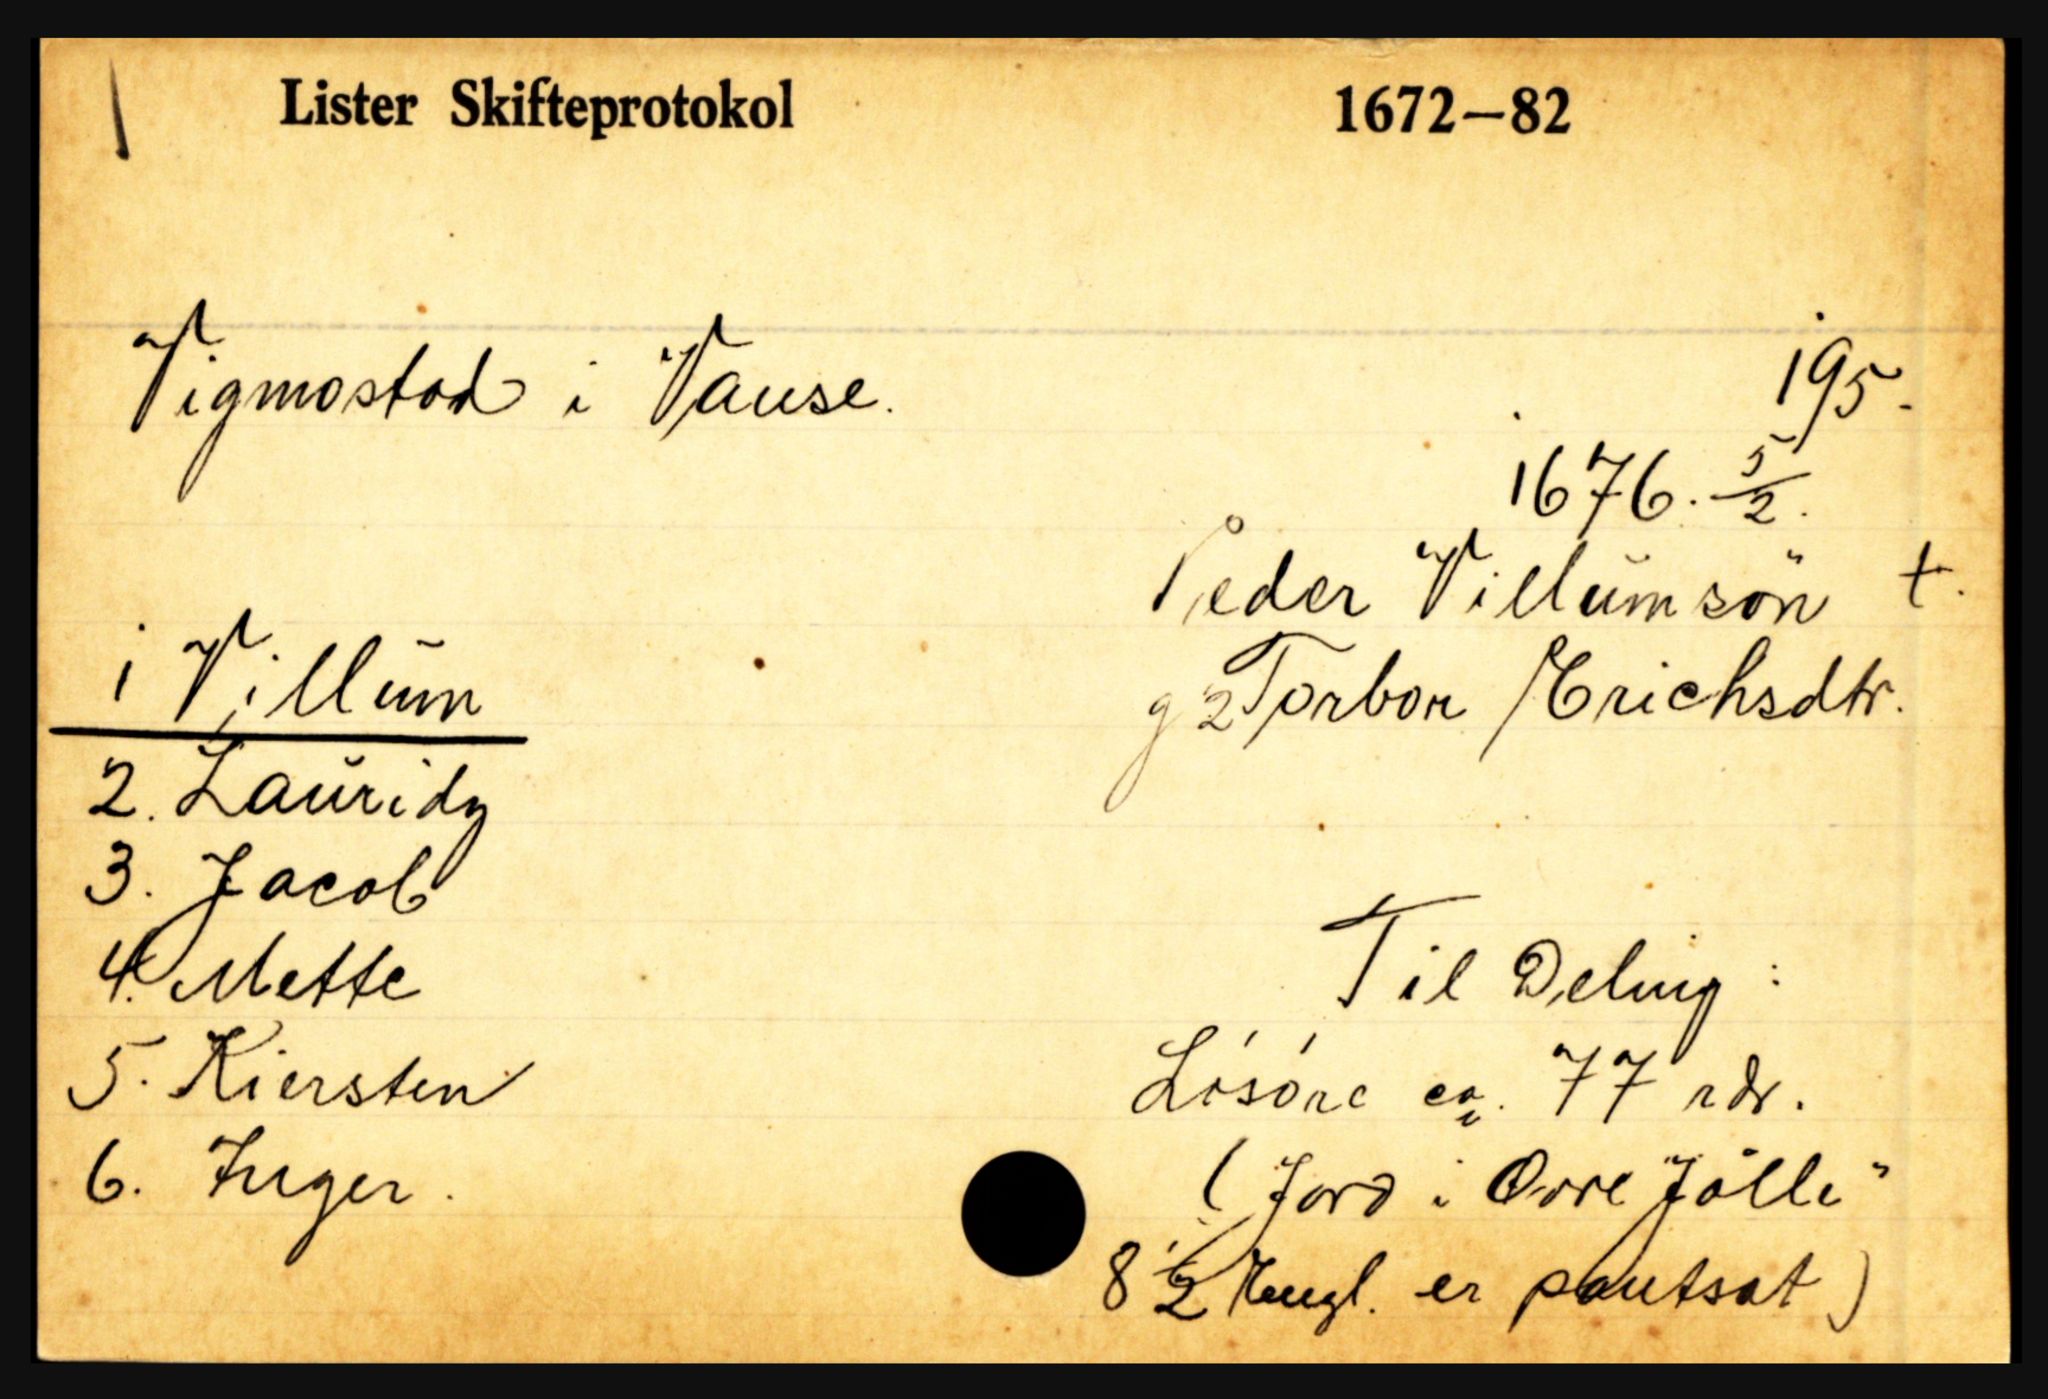 Lister Skifteprotokol 1672–82
Vigmostad i Vanse.
195.
1676. 5/2.
Peder Villumsön †.
g 2 Torbor Erichsdtr.
1 Villum
2. Lauridz
3. Jacob
4. Mette
5. Kiersten
6. Inger.
Til Deling:
Lösöre ca. 77 rdr.
( Jord i Ovre Jölle"
8 1/2 Engl. er pantsat )